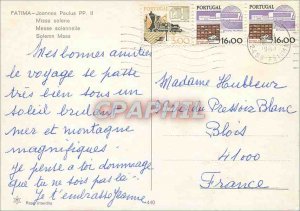 FATIMA—Joannes Paulus PP. II
Missa solene
Messe solennelle
Solemn Mass
PORTUGAL
5.00
PORTUGAL
16.00
PORTUGAL
16.00
Mes bonnes amitiés
le voyage se passe
très bien sous un
soleil brulant
mer et montagne
magnifiques
Je pense à toi dommage
que tu ne sois pas là.
Je t'embrasse Jeanne
Madame Houbbeur
du Pressoir Blanc
Blois
41000
France
CPHRICE.COM